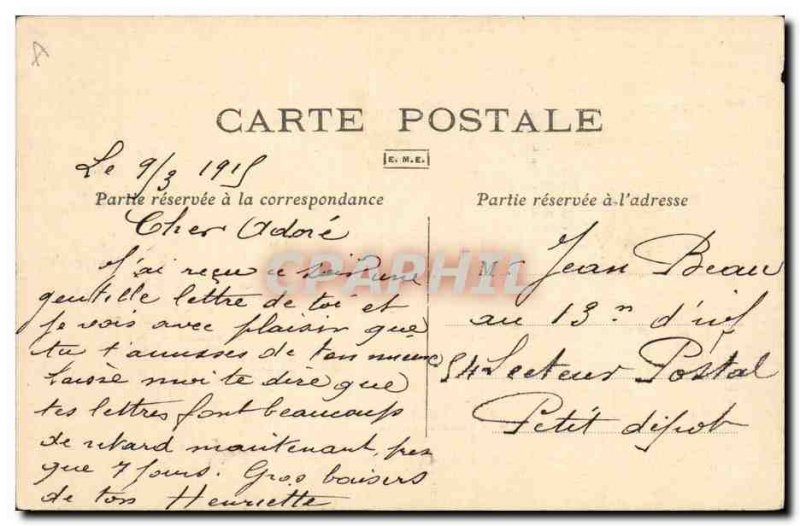 CARTE POSTALE
E. M. E.
Le 9/3 1915
Partie réservée à la correspondance
Cher Adoré
J'ai reçu ce soir une
gentille lettre de toi et
je vois avec plaisir que
tu t'amusses de ton mieux
laisse moi te dire que
tes lettres font beaucoup
de retard maintenant, pres
que 7 jours. Gros baisers
de ton Henriette
Partie réservée à l'adresse
M. Jean Beau
au 13 m d'inf
54 Secteur Postal
Petit dépot
CPAPHIL